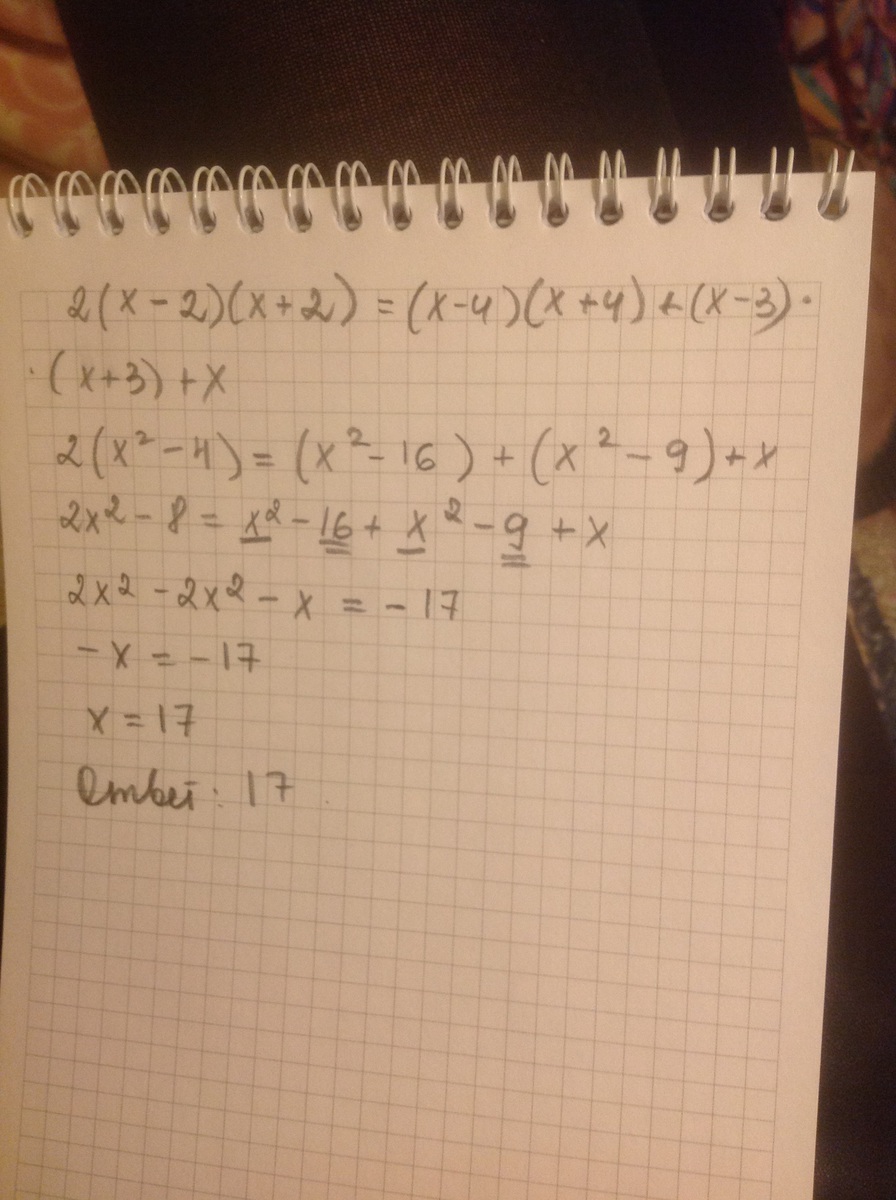 2(x-2)(x+2) = (x-4)(x+4) + (x-3)·
·(x+3) + x
2(x² - 4) = (x² - 16) + (x² - 9) + x
2x² - 8 = x² - 16 + x² - 9 + x
2x² - 2x² - x = - 17
- x = - 17
x = 17
Ответ: 17